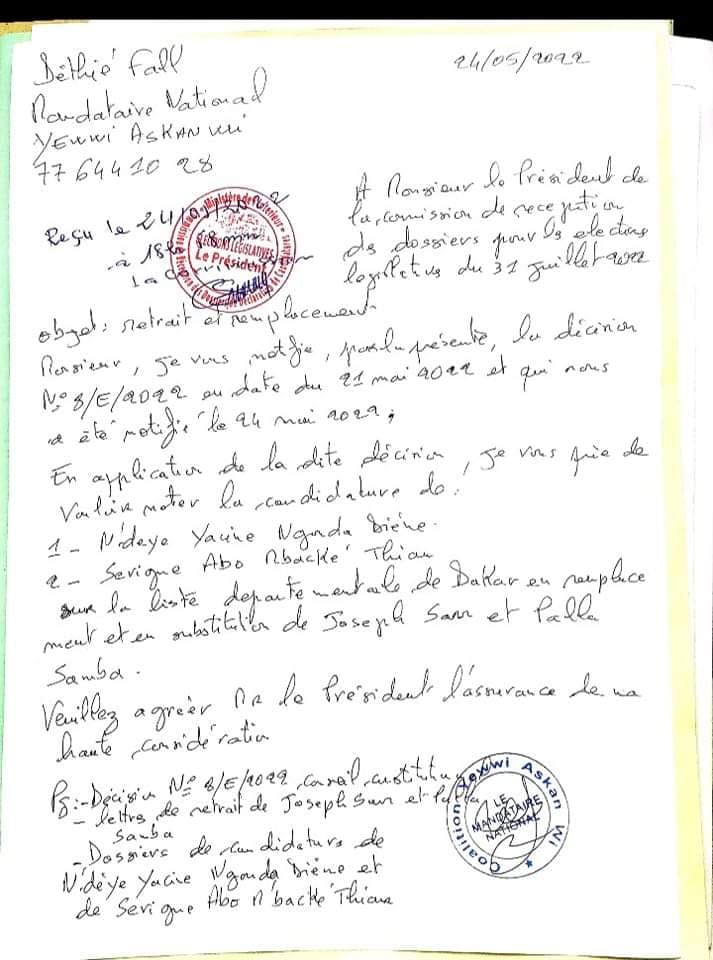 Déthié Fall
24/05/2022
Mandataire National
YEWWI ASKAN WI
77 644 10 28
A Monsieur le Président de
la commission de reception
des dossiers pour les elections
legislatives du 31 juillet 2022
Reçu le 24/05/2022
à 18h
Ministère de l'Intérieur
ELECTIONS LEGISLATIVES
Le Président
objet: retrait et remplacement
Monsieur, je vous notifie, par la présente, la décision
N° 8/E/2022 en date du 21 mai 2022 et qui nous
a été notifié le 24 mai 2022;
En application de la dite décision, je vous prie de
vouloir noter la candidature de:
1 - N'deye Yacine Ngonda Diène.
2 - Serigne Abo Mbacké Thiam
sur la liste departementale de Dakar en remplace
ment et en substitution de Joseph Sarr et Palla
Samba.
Veuillez agréer Mr le Président l'assurance de ma
haute considération
PS:-Décision N° 8/E/2022 conseil constitu
- lettres de retrait de Joseph Sarr et Palla
Samba
- Dossiers de candidature de
N'dèye Yacine Ngonda Diène et
de Sérigne Abo M'backé Thiam
Coalition Yewwi Askan Wi
LE
MANDATAIRE
NATIONAL